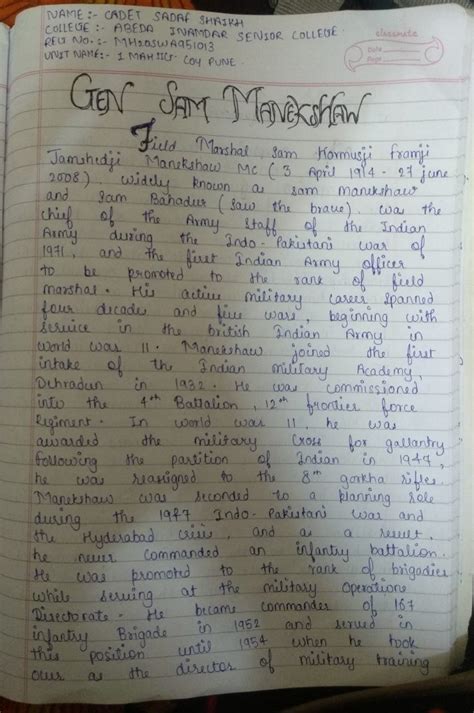 NAME:- CADET SADAF SHAIKH
COLLEGE :- ABEDA INAMDAR SENIOR COLLEGE
REG NO. :- MH20SWA951013
UNIT NAME:- 1 MAH SIG COY PUNE
classmate
Date
Page
GEN SAM MANEKSHAW
Field Marshal Sam Hormusji Framji
Jamshedji Manekshaw MC (3 April 1914 - 27 june
2008). widely known a sam manekshaw
and Sam Bahadur (saw the brave). was the
chief of the Army Staff of the Indian
Army during the Indo-Pakistani war of
1971, and the first Indian Army officer
to be promoted to the rank of field
marshal. His active military career spanned
four decades and five wars, beginning with
service in the british Indian Army in
world war 11. Manekshaw joined the first
intake of the Indian military Academy,
Dehradun in 1932. He was commissioned
into the 4th Battalion, 12th frontier force
Regiment. In world war 11, he was
awarded the military cross for gallantry
following the partition of Indian in 1947,
he was reasigned to the 8th gorkha rifles.
Manekshaw was seconded to a planning role
during the 1947 Indo-Pakistani war and
the Hyderabad crisis, and as a result.
he never commanded an infantry battalion.
He was promoted to the rank of brigadies
while serving at the military operations
Directorate. He became commander of 167
infantry Brigade in 1952 and served in
this position until 1954 when he took
over as the director of military training